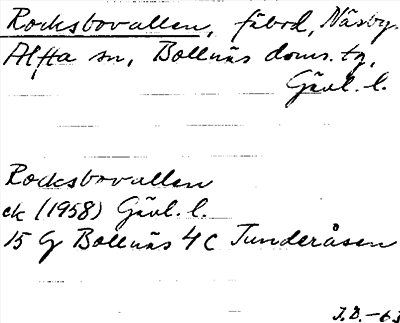 Rocksbovallen, fäbod, Näsby.
Alfta sn, Bollnäs doms. tg,
Gävl. l.
Rocksbovallen
ek (1958) Gävl. l.
15 G Bollnäs 4 c Tunderåsen
J.D.-63